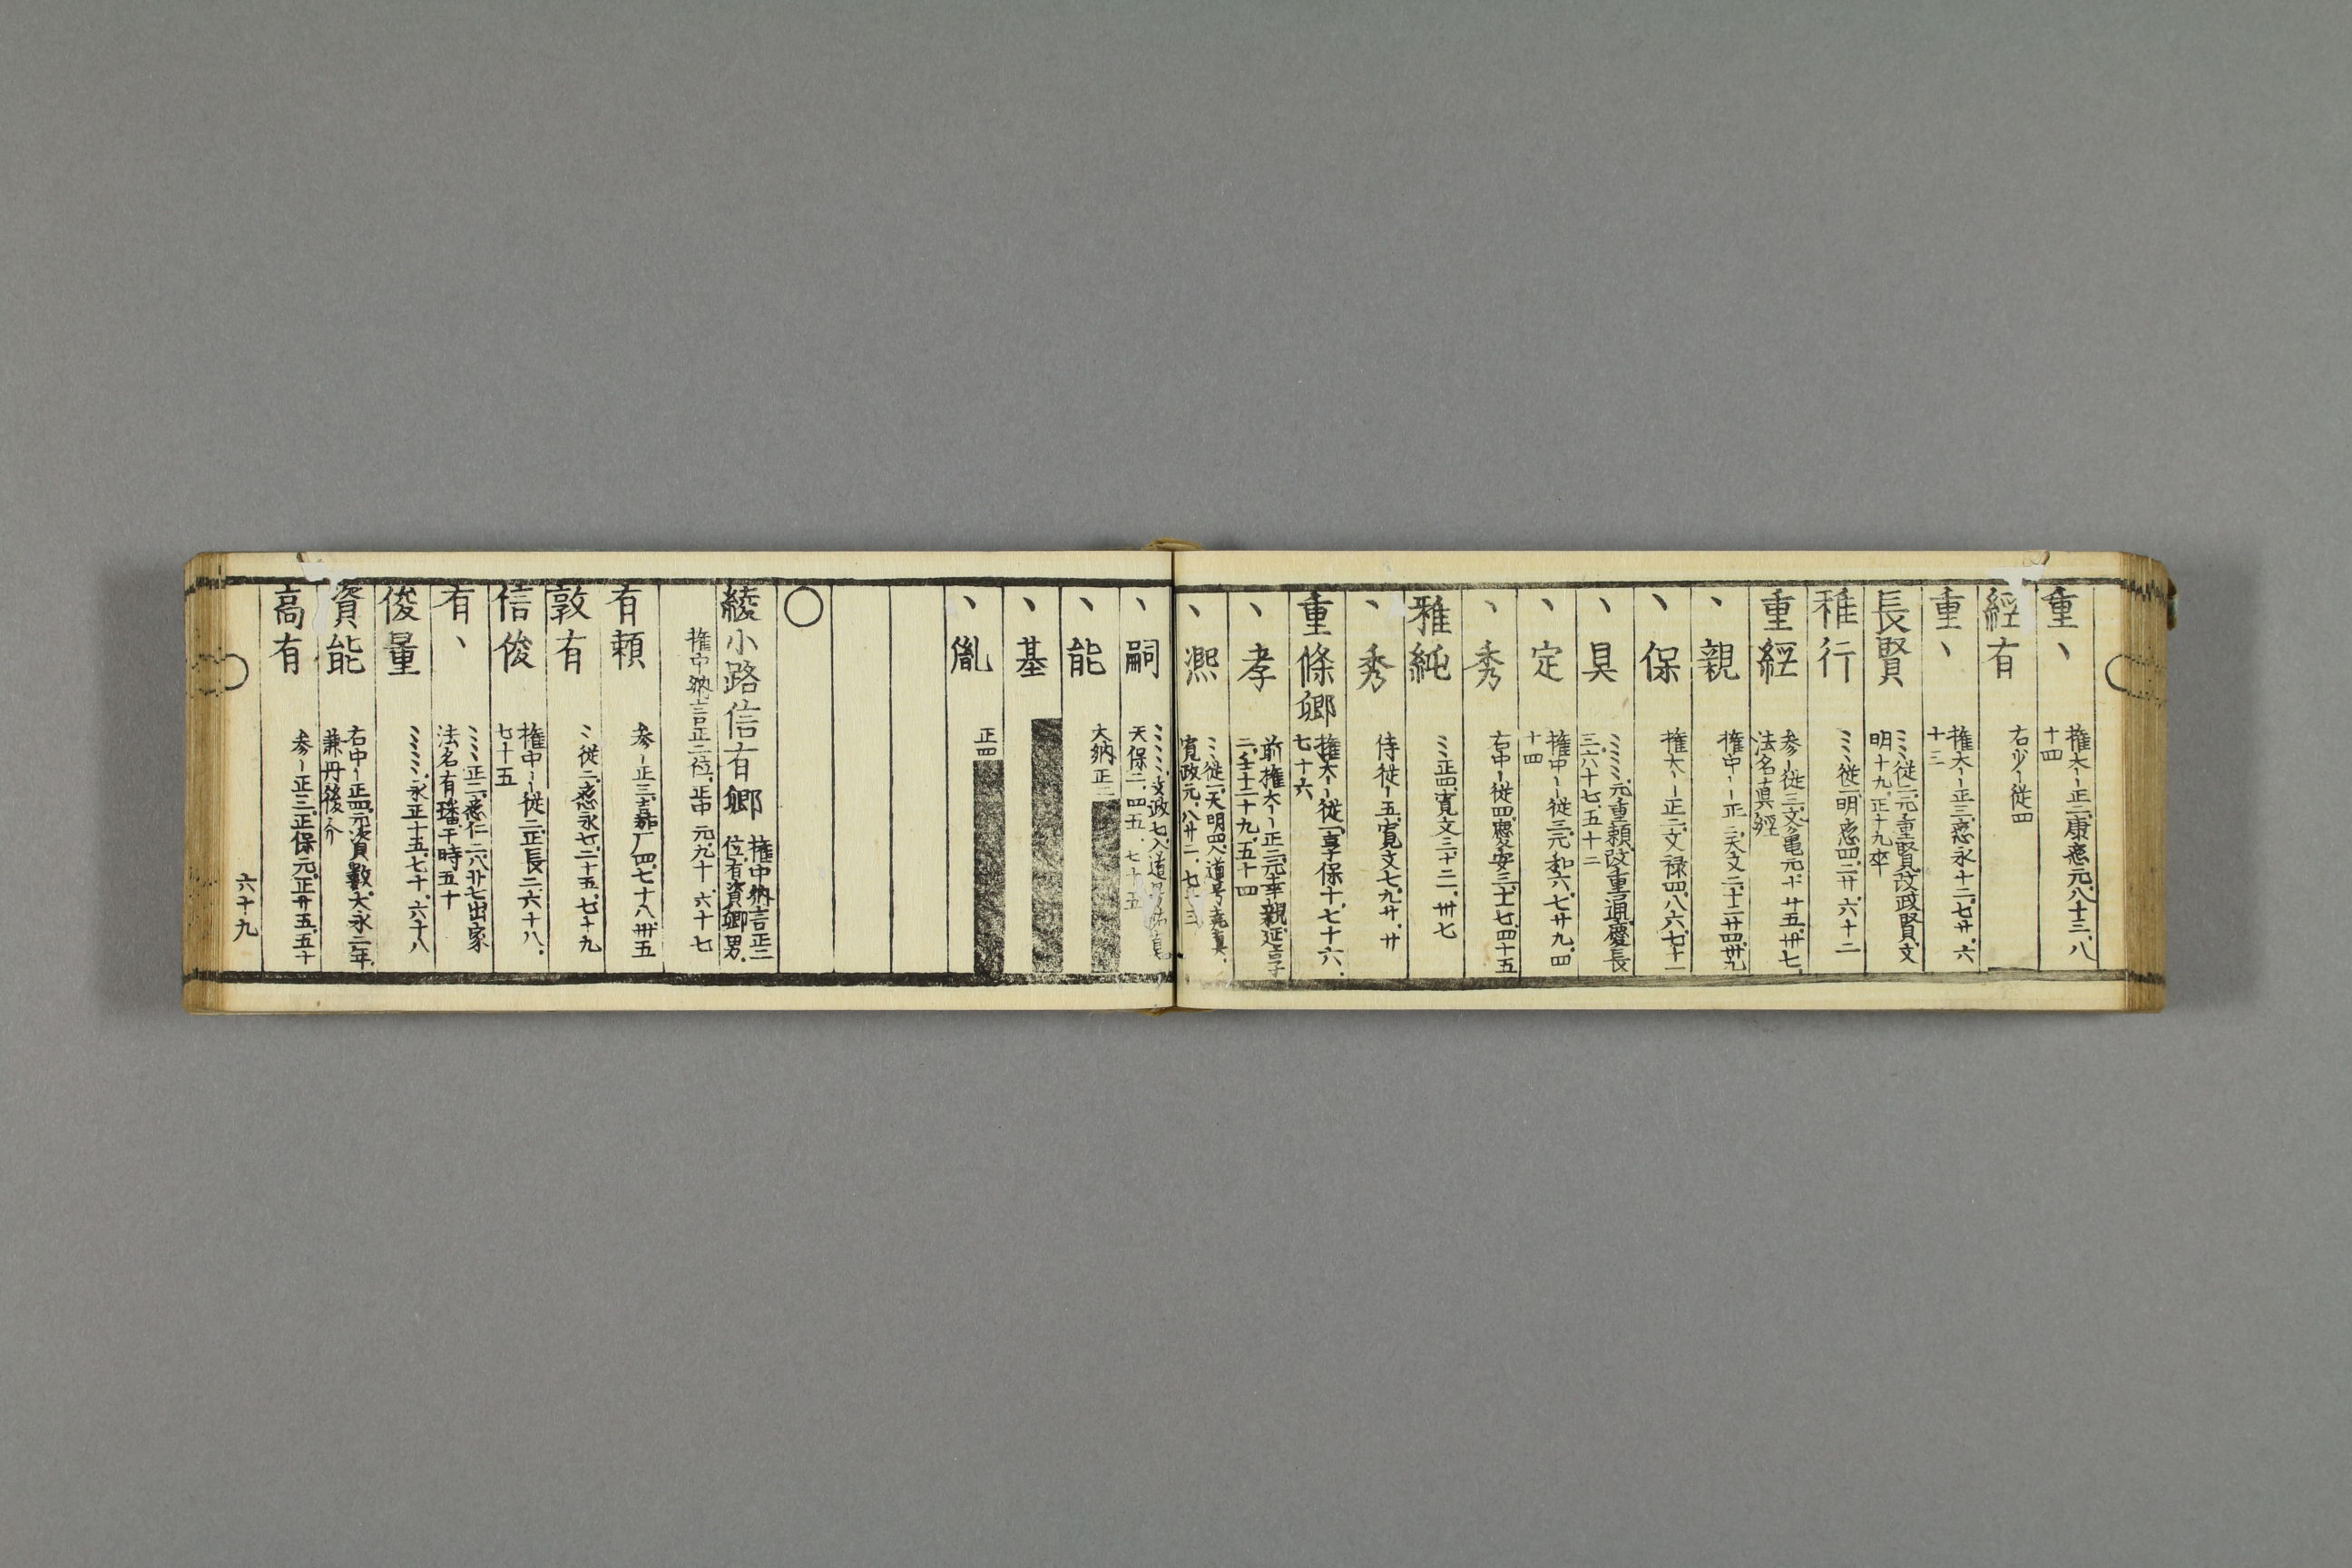 重丶 権大〻正二、康応元、八、十三、八
十四
經有 右少〻従四
重丶 権大〻正三、応永十二、七、廿、六
十三
長賢 〻〻従二、元重賢、改政賢、文
明十九、正十九卒
稚行 〻〻従二、明応四、二、廿、六十二
重經 参〻従三、文亀元、十、廿五、卅七、
法名真經
丶親 権中〻正二、天文二、十二、廿四、卅九
丶保 権大〻正二、文禄四、八、六、七十一
丶具 〻〻〻、元重頼、改重通、慶長
三、六、十七、五十二
丶定 権中〻従三、元和六、七、廿九、四
十四
丶秀 右中〻従四、慶安三、十、七、四十五
雅純 〻正四、寛文三、十二、卅七
丶秀 侍従〻五、寛文七、九、廿、廿
重條卿 権大〻従一、享保十、七、十六、
七十六
丶孝 前権大〻正二、元幸親、延享
二、壬十二、十九、五十四
丶凞 〻従一、天明四、入道号堯真、
寛政元、八、廿二、七十三
丶嗣 〻〻〻、文政七、入道
天保二、四、五、七十五
丶能 大納正二
丶基
丶胤 正四
〇
綾小路信有卿 権中納言正二
位、有資卿男、
権中納言正二位、正中元、九、十、六十七
有頼 参〻正三、嘉厂四、七、十八、卅五
敦有 〻従二、応永七、二、十五、七十九
信俊 権中〻従二、正長二、六、十八、
七十五
有丶 〻〻正二、応仁二、八、廿七出家
法名有璠于時五十
俊量 〻〻〻、永正十五、七、十、六十八
資能 右中〻正四、元資數、大永二年、
兼丹後介
高有 参〻正三、正保元、正、廿五、五十
六十九